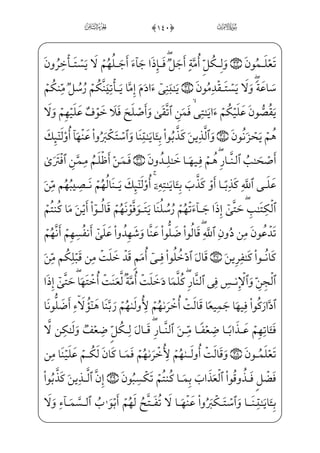 الجزء الثامن ﴿١٤٠﴾ سورة الأعراف
تَعْلَمُونَ ﴿٣٣﴾ وَلِكُلِّ أُمَّةٍ أَجَلٌ ۖ فَإِذَا جَآءَ أَجَلُهُمْ لَا يَسْتَأْخِرُونَ
سَاعَةً ۖ وَلَا يَسْتَقْدِمُونَ ﴿٣٤﴾ يَٰبَنِىٓ ءَادَمَ إِمَّا يَأْتِيَنَّكُمْ رُسُلٌ مِّنكُمْ
يَقُصُّونَ عَلَيْكُمْ ءَايَٰتِى ۙ فَمَنِ ٱتَّقَىٰ وَأَصْلَحَ فَلَا خَوْفٌ عَلَيْهِمْ وَلَا
هُمْ يَحْزَنُونَ ﴿٣٥﴾ وَٱلَّذِينَ كَذَّبُوا۟ بِـَٔايَٰتِنَا وَٱسْتَكْبَرُوا۟ عَنْهَآ أُو۟لَٰٓئِكَ
أَصْحَٰبُ ٱلنَّارِ ۖ هُمْ فِيهَا خَٰلِدُونَ ﴿٣٦﴾ فَمَنْ أَظْلَمُ مِمَّنِ ٱفْتَرَىٰ
عَلَى ٱللَّهِ كَذِبًا أَوْ كَذَّبَ بِـَٔايَٰتِهِۦٓ ۚ أُو۟لَٰٓئِكَ يَنَالُهُمْ نَصِيبُهُم مِّنَ
ٱلْكِتَٰبِ ۖ حَتَّىٰٓ إِذَا جَآءَتْهُمْ رُسُلُنَا يَتَوَفَّوْنَهُمْ قَالُوٓا۟ أَيْنَ مَا كُنتُمْ
تَدْعُونَ مِن دُونِ ٱللَّهِ ۖ قَالُوا۟ ضَلُّوا۟ عَنَّا وَشَهِدُوا۟ عَلَىٰٓ أَنفُسِهِمْ أَنَّهُمْ
كَانُوا۟ كَٰفِرِينَ ﴿٣٧﴾ قَالَ ٱدْخُلُوا۟ فِىٓ أُمَمٍ قَدْ خَلَتْ مِن قَبْلِكُم مِّنَ
ٱلْجِنِّ وَٱلْإِنسِ فِى ٱلنَّارِ ۖ كُلَّمَا دَخَلَتْ أُمَّةٌ لَّعَنَتْ أُخْتَهَا ۖ حَتَّىٰٓ إِذَا
ٱدَّارَكُوا۟ فِيهَا جَمِيعًا قَالَتْ أُخْرَىٰهُمْ لِأُولَىٰهُمْ رَبَّنَا هَٰٓؤُلَآءِ أَضَلُّونَا
فَـَٔاتِهِمْ عَذَابًا ضِعْفًا مِّنَ ٱلنَّارِ ۖ قَالَ لِكُلٍّ ضِعْفٌ وَلَٰكِن لَّا
تَعْلَمُونَ ﴿٣٨﴾ وَقَالَتْ أُولَىٰهُمْ لِأُخْرَىٰهُمْ فَمَا كَانَ لَكُمْ عَلَيْنَا مِن
فَضْلٍ فَذُوقُوا۟ ٱلْعَذَابَ بِمَا كُنتُمْ تَكْسِبُونَ ﴿٣٩﴾ إِنَّ ٱلَّذِينَ كَذَّبُوا۟
بِـَٔايَٰتِنَا وَٱسْتَكْبَرُوا۟ عَنْهَا لَا تُفَتَّحُ لَهُمْ أَبْوَٰبُ ٱلسَّمَآءِ وَلَا